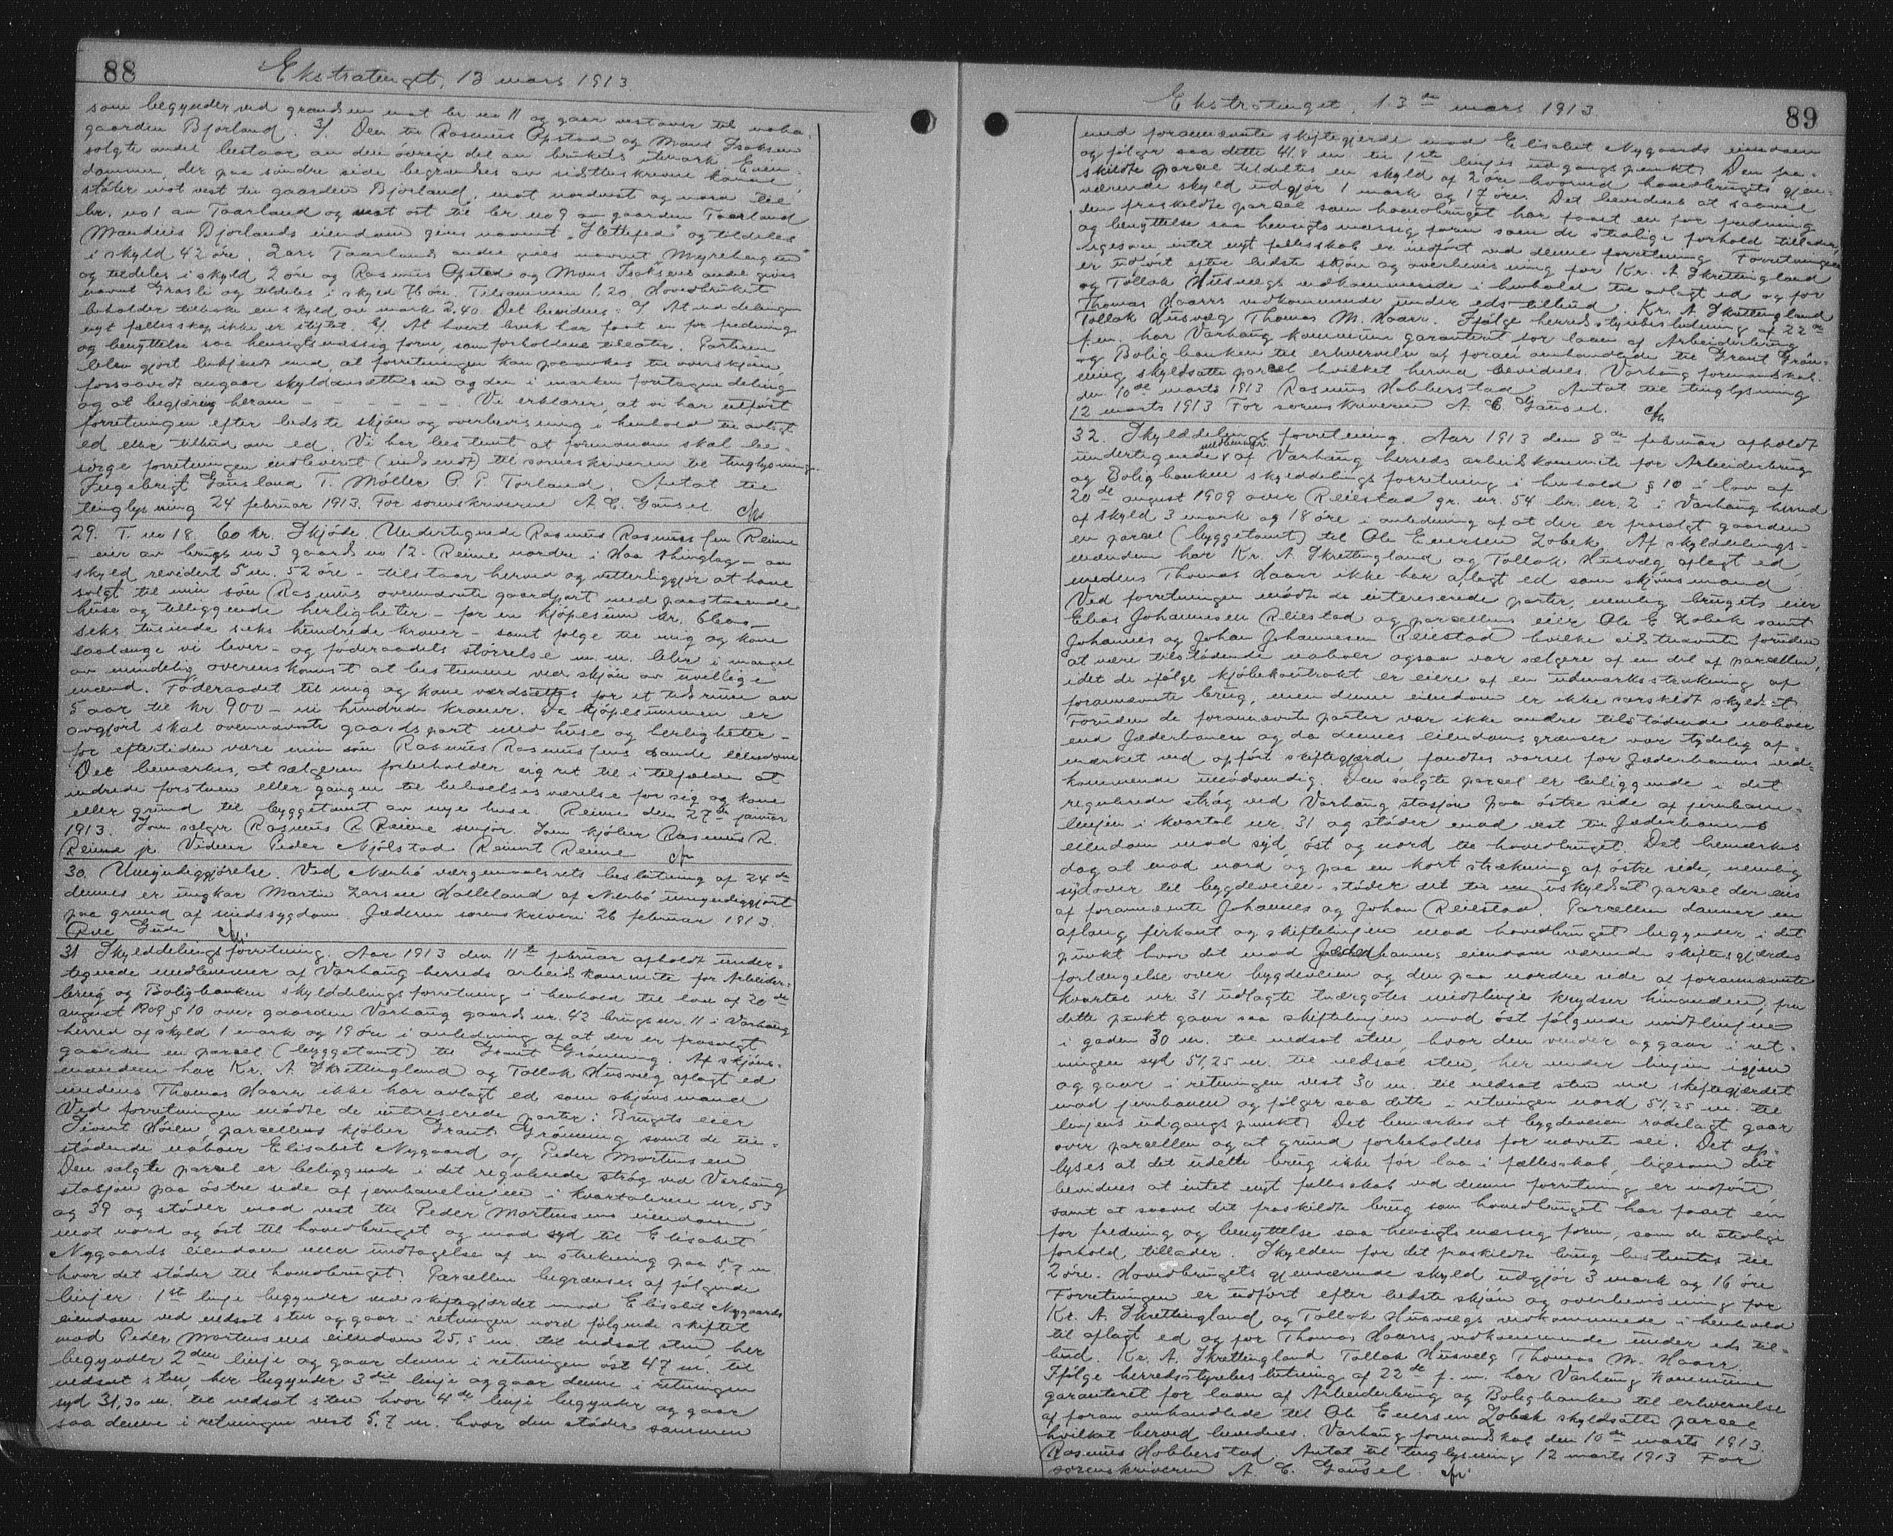 88
Ekstratinget, 13 mars 1913.
som begynder ved grændsen mot br. no 11 og gaar vestover til nabo-
gaarden Bjorland. 3/. Den til Rasmus Opstad og Mons Isaksen
solgte andel bestaar av den övrige del av brukets utmark Eien-
dommen, der paa söndre side begrændses av sidstbeskrevne
stöter mot vest til gaarden Bjorland, mot nordvest og nord til
br. no 1 av Taarland og mot ost til br no 9 av gaarden Taarland
Mandius Bjorlands eiendom gives navnet "Slettefed" og tildeles
i skyld 42 öre. Lars Taarlands andel gives navnet "Myrehagen"
og tildeles i skyld 2 öre og Rasmus Opstad og Mons Isaksens andel gives
navnet Grasli og tildeles i skyld 76 öre. Tilsammen 1,20. Hovedbruket
beholder tilbake en skyld av mark 2.40. Det bevidnes: a/ At ved delingen
nyt fællesskap ikke er stiftet. b/ At hvert bruk har faat en for fredning
og benyttelse saa hensigtsmæssig form, som forholdene tillater. Parterne
blev gjort bekjent med, at forretningen kan paaankes til overskjön,
forsaavidt angaar skyldansættelsen og den i marken foretagne deling
og at begjæring herom - - - - - Vi erklærer, at vi har utfört
forretningen efter bedste skjön og overbevisning i henhold til avlagt
ed eller tilbud om ed. Vi har bestemt at formanden skal be-
sörge forretningen indleveret (indsendt) til sorenskriveren til tinglysning.
Ingebrigt Gausland T. Möller O. P. Torland. Antat til
tinglysning 24 februar 1913. For sorenskriveren A. E. Gausel
29. T. no 18. 60 kr. Skjöde. Undertegnede Rasmus Rasmussen Reime
- eier av brugs no 3 gaards no 12 - Reime nordre i Haa thinglag - av
skyld revidert 5 m. 52 öre - tilstaar herved og vitterliggjör at have
solgt til min sön Rasmus ovennævnte gaardpart med paastaaende
huse og tilliggende herligheter - for en kjöpesum kr. 6600 -
seks tusinde seks hundrede kroner - samt folge til mig og kone
saalænge vi lever - og föderaadets störrelse m. m. blir i mangel
av mindelig overenskomst at bestemme ved skjön av uvillige
mænd. Föderaadet til mig og kone værdsættes for et tidsrum av
5 aar til kr 900 - ni hundrede kroner. Da kjöpesummen er
avgjort skal ovennævnte gaardspart med huse og herligheter -
for eftertiden være min sön Rasmus Rasmussens sande eiendom
Det bemærkes, at sælgeren forbeholder sig ret til i tilfælde at
indrede forstuen eller gangen til beboelsesværelse for sig og kone
eller grund til byggetomt av nye huse Reime den 27de januar
1913. Som sælger Rasmus R Reime senior. Som kjöber Rasmus R.
Reime jr. Vidner Peder Njölstad Reimert Reime
30. Umyndiggjörelse. Ved Nærbö værgemaalsrets beslutning af 24de
dennes er ungkar Martin Larsen Halleland af Nærbö umyndiggjort
paa grund af sindssygdom. Jæderen sorenskriveri 26 februar 1913
Ove Gude
31 Skylddelingsforretning. Aar 1913 den 11te februar afholdt under-
tegnede medlemmer af Varhaug herreds arbeidskommite for Arbeider-
brug og Boligbanken skylddelingsforretning i henhold til lov af 20de
august 1909 § 10 over gaarden Varhaug gaards nr. 42 brugs nr. 11 i Varhaug
herred af skyld 1 mark og 19 öre i anledning af at der er frasolgt
gaarden en parcel (byggetomt) til Graut Grönning. Af skjöns-
mændene har Kr. A. Skrettingland og Tollak Husvæg aflagt ed
medens Thomas Haarr ikke har avlagt ed som skjönsmand
Ved forretningen mödte de interesserede parter: Brugets eier
Sivert Höien parcellens kjöber Graut Grönning samt de til-
stödende naboer Elisabet Nygaard og Peder Mortensen
Den solgte parcel er beliggende i det regulerede strög ved Varhaug
stasjon paa östre side af jernbanelinien i kvartalerne nr. 53
og 39 og stöder mod vest til Peder Mortensens eiendom,
mot nord og öst til hovedbruget og mod syd til Elisabet
Nygaards eiendom med undtagelse af en strekning paa 5.7 m
hvor det stöder til hovedbruget. Parcellen begrænses af fölgende
linjer: 1ste linje begynder ved skiftegjærdet mod Elisabet Nygaards
eiendom ved nedsat sten og gaar i retningen nord fölgende skiftet
mod Peder Mortensens eiendom 25,5 m. til nedsat sten her
begynder 2den linje og gaar denne i retningen öst 47 m. til
nedsat sten, her begynder 3die linje og gaar denne i retningen
syd 31,30 m. til nedsat sten hvor 4de linje begynder og gaar
saa denne i retningen vest 5.7 m. hvor den stöder sammen
Ekstratinget, 13de mars 1913.
89
med forannævnte skiftegjerde mod Elisabet Nygaards eiendom
og følger saa dette 41,8 m. til 1ste linjes udgangspunkt. Den fra-
skildte parcel tildeltes en skyld af 2 öre hvorved hovedbrugets gjen-
værende skyld udgjör 1 mark og 17 öre. Det bevidnes at saavel
den fraskildte parcel som hovedbruget har faaet en for fredning
og benyttelse saa hensigtsmæssig form som de stedlige forhold tillader,
ligesom intet nyt fællesskab er indfört ved denne forretning. Forretningen
er udfört efter bedste skjön og overbevisning for Kr. A Skrettingland
og Tollak Husvægs vedkommende i henhold til avlagt ed og for
Thomas Haarrs vedkommende under eds tilbud. Kr. A. Skrettingland
Tollak Husvæg Thomas M. Haarr. Ifølge herredsstyrebeslutning af 22de
f.m. har Varhaug kommune garanteret for laan af Arbeiderbrug
og Boligbanken til erhvervelse af foran omhandlede til Graut Grön-
ning skyldsatte parcel hvilket herved bevidnes. Varhaug formandskab
den 10de marts 1913 Rasmus Hobberstad Antat til tinglysning
12 marts 1913 For sorenskriveren A. E. Gausel.
32. Skylddelingsforretning. Aar 1913 den 8de februar afholdt
undertegnede medlemmer af Varhaug herreds arbeidskommite for Arbeiderbrug
og Boligbanken skylddelingsforretning i henhold § 10 i lov af
20de august 1909 over Reiestad gr. nr. 54 br. nr. 2 i Varhaug herred
af skyld 3 mark og 18 öre i anledning af at der er frasolgt gaarden
en parcel (byggetomt) til Ole Enersen Lobek. Af skylddelings-
mændene har Kr. A Skrettingland og Tollak Husvæg aflagt ed
medens Thomas Haarr ikke har aflagt ed som skjönsmand
Ved forretningen mödte de interesserede parter, nemlig brugets eier
Elias Johannesen Reiestad og parcellens eier Ole E Lobek samt
Johannes og Johan Johannesen Reiestad hvilke sidstnævnte foruden
at være tilstödende naboer ogsaa var sælgere af en del af parcellen,
idet de ifölge kjöbekontrakt er eiere af en udmarksstrekning af
forannævnte brug, men denne eiendom er ikke særskildt skyldsat
Foruden de forannævnte parter var ikke andre tilstödende naboer
end Jæderbanen og da dennes eiendoms grænser var tydelig af-
mærket ved opfört skiftegjærde, fandtes varsel for Jæderbanens ved-
kommende unödvendig. Den solgte parcel er beliggende i det
regulerede strög ved Varhaug stasjon paa östre side af jernbane-
linjen i kvartal nr. 31 og stöder mod vest til Jæderbanens
eiendom mod syd öst og nord til hovedbruget. Det bemærkes
dog at mod nord og paa en kort strekning af östre side, nemlig
sydover til bygdeveien stöder det til en uskyldsat parcel der eies
af forannævnte Johannes og Johan Reiestad. Parcellen danner en
aflang firkant og skiftelinjen mod hovedbruget begynder i det
punkt hvor det mod Jæderbanens eiendom værende skiftegjærdes
forlængelse over bygdeveien og den paa nordre side af forannævnte
kvartal nr. 31 udlagte tværgates midtlinje krydser hinanden, fra
dette punkt gaar saa skiftelinjen mod öst følgende midtlinjen
i gaden 30 m. til nedsat sten, hvor den vender og gaar i ret-
ningen syd 51,25 m. til nedsat sten, her vender linjen igjen
og gaar i retningen vest 30 m. til nedsat sten ved skiftegjærdet
mod jernbanen og fölger saa dette i retningen nord 51,25 m. til
linjens udgangspunkt. Det bemærkes at bygdeveien rodelagt gaar
over parcellen og at grund forbeholdes for nævnte vei. Det op-
lyses at det udelte brug ikke før laa i fællesskab, ligesom det
bevidnes at intet nyt fællesskab ved denne forretning er indfört,
samt at saavel det fraskildte brug som hovedbruget har faaet en
for fredning og benyttelse saa hensigtsmæssig form, som de stedlige
forhold tillader. Skylden for det fraskildte brug bestemtes til
2 öre. Hovedbrugets gjenværende skyld udgjör 3 mark og 16 öre
Forretningen er udfört efter bedste skjön og overbevisning for
Kr. A. Skrettingland og Tollak Husvægs vedkommende i henhold
til aflagt ed og for Thomas Haarrs vedkommende under eds til-
bud. Kr. A. Skrettingland Tollak Husvæg Thomas M. Haarr.
Ifölge herredsstyrebeslutning af 22de f. m. har Varhaug kommune
garanteret for laan af Arbeiderbrug og Boligbanken til erhvervelse
af foran omhandlede til Ole Enersen Lobek skyldsatte parcel
hvilket herved bevidnes. Varhaug formandskab den 10de marts 1913.
Rasmus Hobberstad. Antat til tinglysning 12 marts 1913 For
sorenskriveren A. E. Gausel.